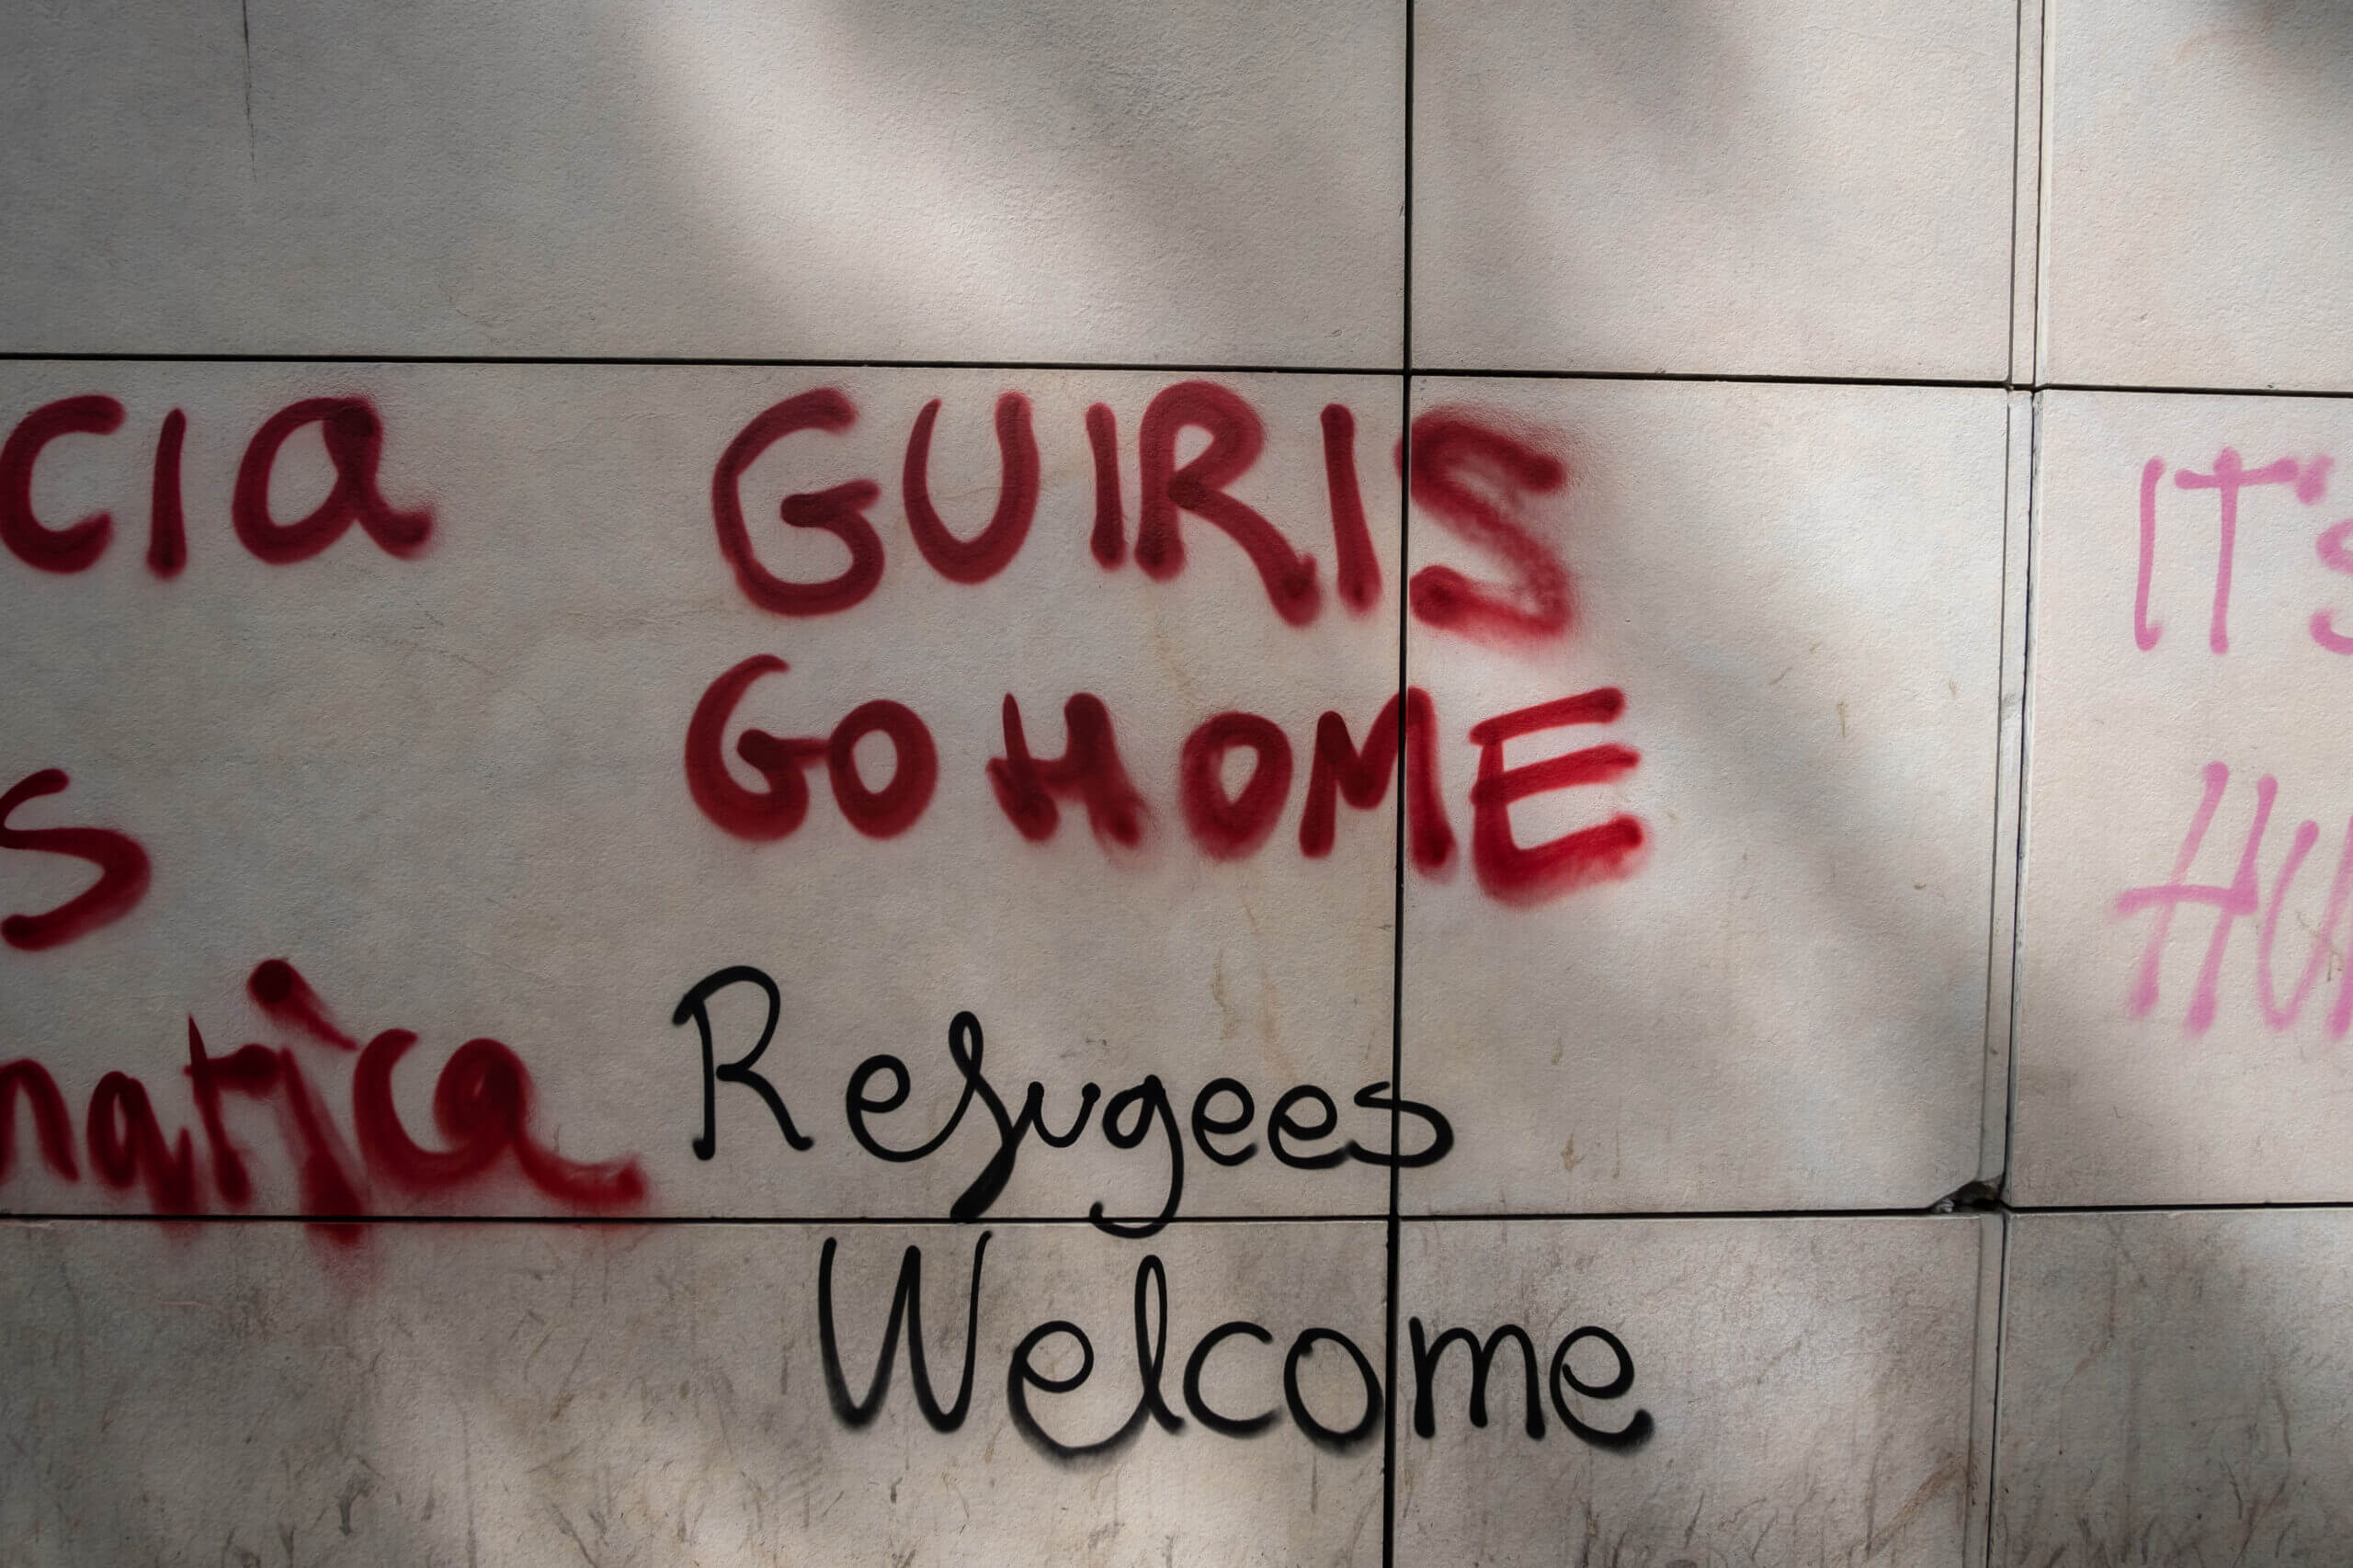 cia
GUIRIS
GO HOME
s
matica
Refugees
Welcome
IT'S
HU